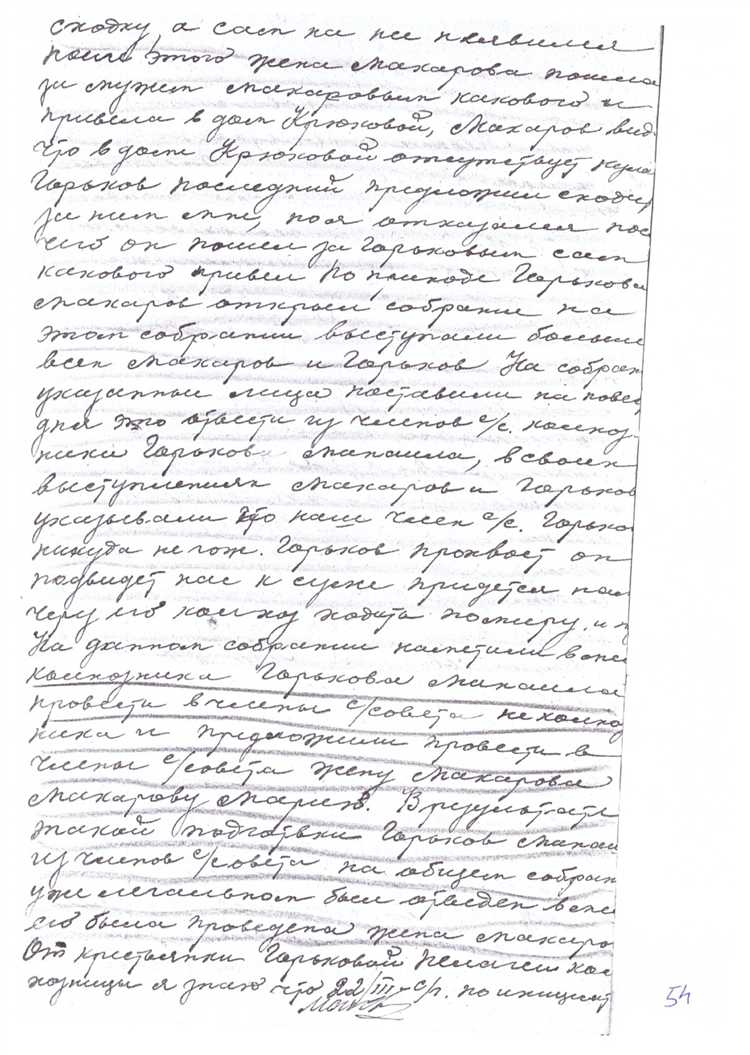 сходку, а сам на нее не явился
после этого жена Макарова пошла
за мужем Макаровым какового и
привела в дом Крюковой, Макаров вид
что в доме Крюковой отсутствует
Горьков последний предложил сходит
за ним мне, но я отказался пос
чего он пошел за Горьковым сам
какового привел По приходе Горькова
Макаров открыл собрание на
этом собрании выступали больше
всех Макаров и Горьков На собран
указанные лица поставили на повес
дня это отвести из членов с/с. колхоз
ника Горькова Михаила, в своих
выступлениях Макаров и Горьков
указывали что наш член с/с. Горьков
никуда не гож. Горьков прохвост он
подведет нас к суме придется нам
через его колхоз ходить по миру. и
На данном собрании наметили вме
колхозника Горькова Михаила
провести в члены с/совета не колхоз
ника и предложили провести в
члены с/совета жену Макарова
Макарову Марию. В результате
такой подготвки Горьков Михаи
из членов с/совета на общем собран
уже легальном был отведен вме
его была проведена жена Макаро
От крестьянки Горьковой Пелагеи кол
хозницы я знаю что 22/III-с/г. по инициат
54